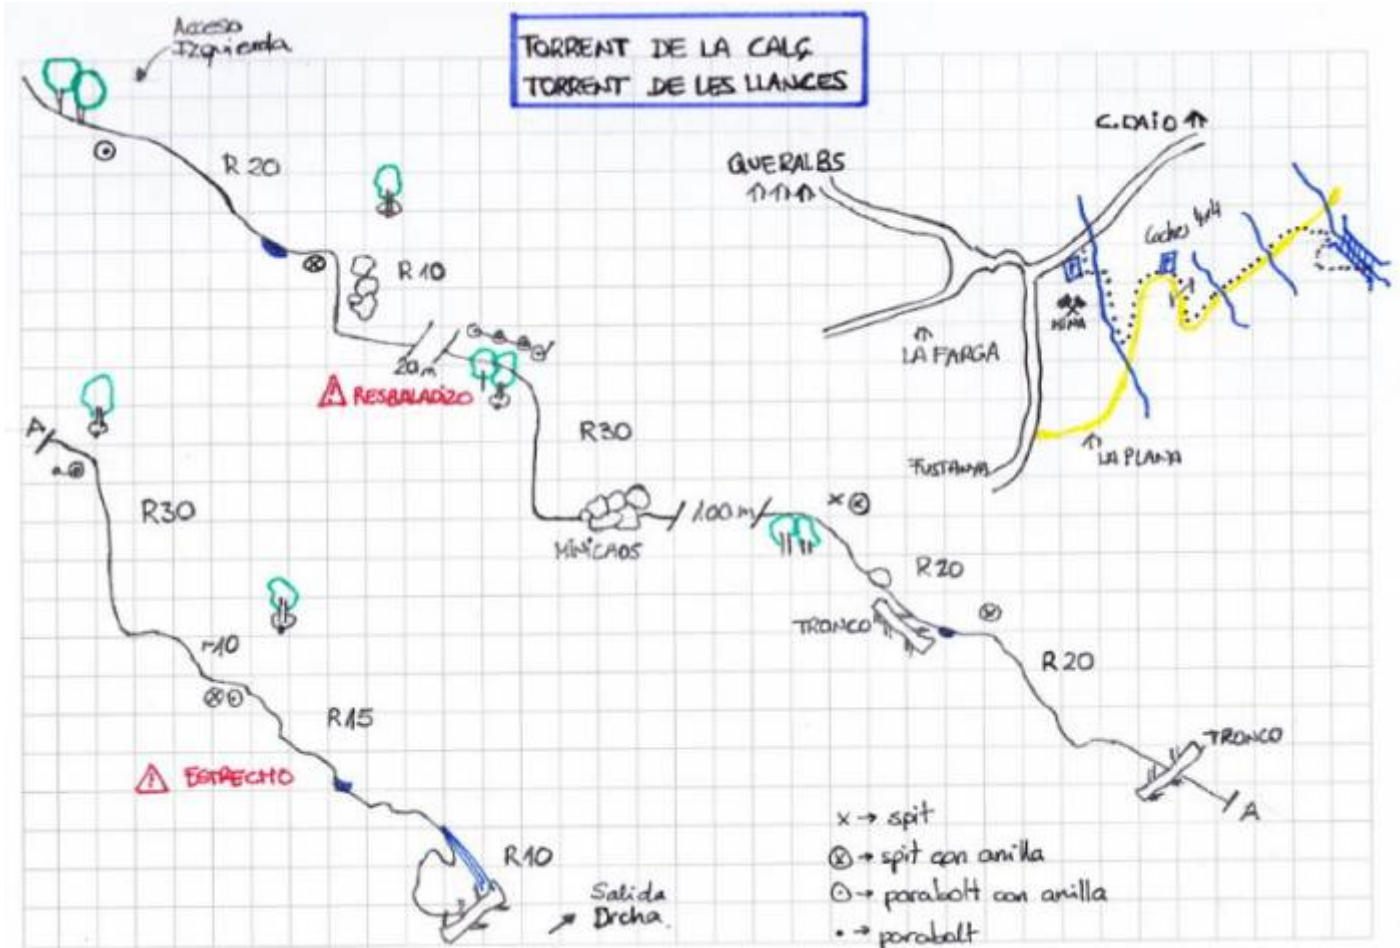 Acceso
Izquierda
TORRENT DE LA CALÇ
TORRENT DE LES LLANCES
R 20
R 10
20m
RESBALADIZO
R30
MINICAOS
100 m
R20
TRONCO
R20
TRONCO
A
A
R30
r10
R15
ESTRECHO
R10
Salida
Drcha.
QUERALBS
C.DAIO
Coches 4x4
P
P
MINA
LA FARGA
FUSTANYA
LA PLANA
x → spit
⊗ → spit con anilla
⊙ → parabolt con anilla
• → parabolt